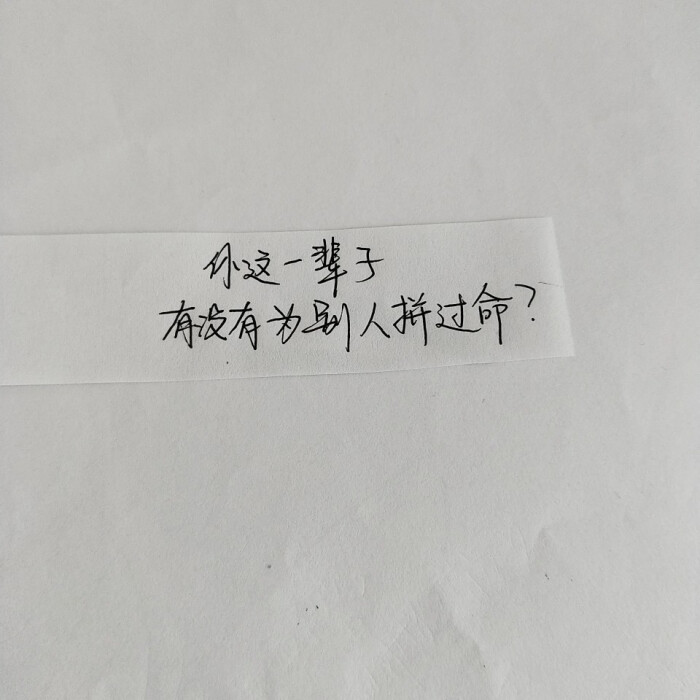 你这一辈子
有没有为别人拼过命?